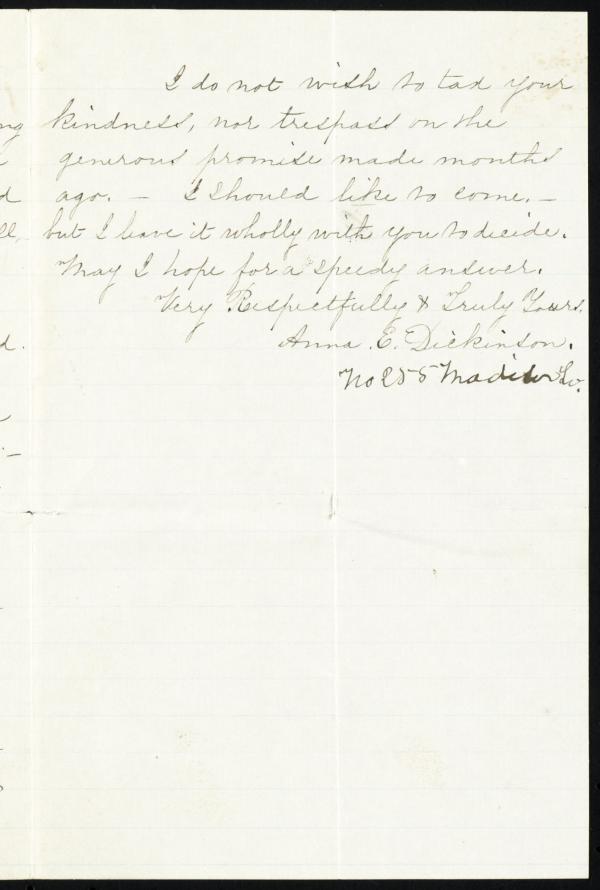 I do not wish to tax your
kindness, nor trespass on the
generous promise made months
ago. — I should like to come. —
but I leave it wholly with you to decide.
May I hope for a speedy answer.
Very Respectfully & Truly Yours.
Anna. E. Dickinson.
No 255 Madison